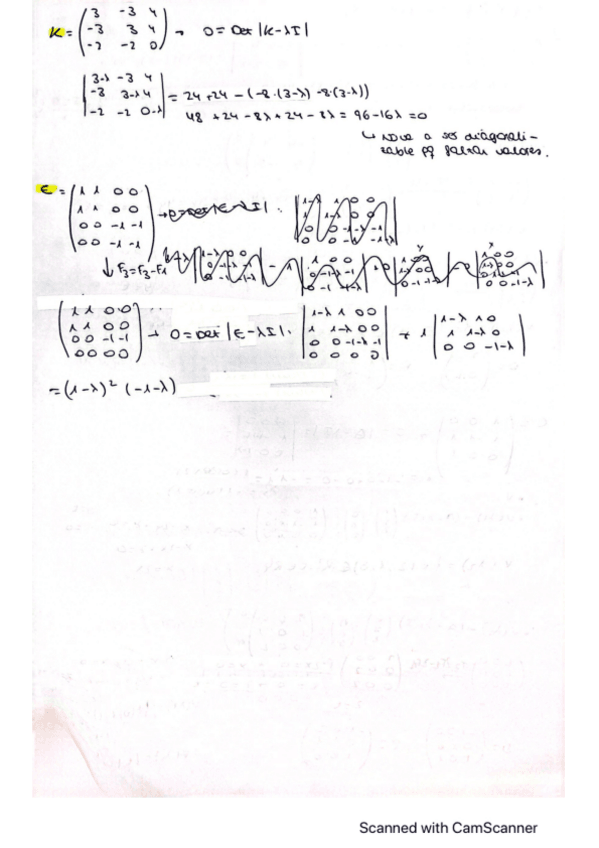 K = ( 3 -3 4 ; -3 3 4 ; -2 -2 0 ) → 0 = Det |K-λI|
| 3-λ -3 4 ; -3 3-λ 4 ; -2 -2 0-λ | = 24+24 - (-8·(3-λ) -8·(3-λ))
48 +24 - 8λ +24 - 8λ = 96-16λ = 0
a ser diagonali-
zable pq faltan valores.
E = ( 1 1 0 0 ; 1 1 0 0 ; 0 0 -1 -1 ; 0 0 -1 -1 )
↓ F3=F3-F1
( 1 1 0 0 ; 1 1 0 0 ; 0 0 -1 -1 ; 0 0 0 0 ) → 0 = Det |E-λI| · | 1-λ 1 0 0 ; 1 1-λ 0 0 ; 0 0 -1-λ -1 ; 0 0 0 0 | + 1 | 1-λ 1 0 ; 1 1-λ 0 ; 0 0 -1-λ |
= (1-λ)² (-1-λ)
Scanned with CamScanner